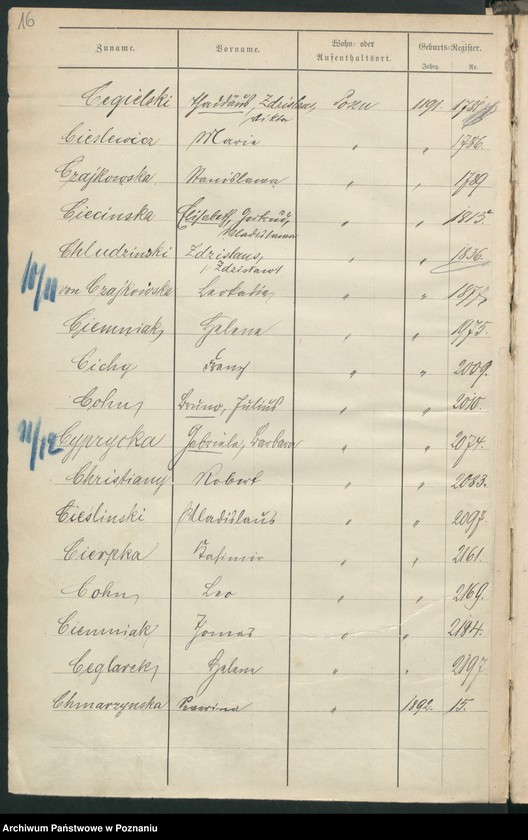 16
Zuname. Vorname. Wohn- oder Aufenthaltsort. Geburts-Register.
Jahrg. Nr.
Cegielski Thaddäus, Zdzislaus, Posen 1891. 1738
Cieslewicz Maria " " 1786.
Czajkowska Stanislawa " " 1789
Ciecinska Elisabeth, Gertrud, " " 1815.
Wladislawa
Chludzinski Zdzislaus, " " 1836.
Zdzisław
10/11 von Czajkowska Leokadia " "
Ciemniak, Helena " " 1975.
Cichy Franz " " 2009.
Cohn, Bruno, Julius " " 2010.
11/12 Cyprycka Gabriela, Barbara " " 2074.
Christiany Robert " " 2083.
Cieslinski Wladislaus " " 2097.
Cierpka Kasimir " " 2161.
Cohn, Leo " " 2169.
Ciemniak, " " 2184.
Ceglarek, Helene " " 2197
Chmarzynska Severina " 1892. 15.
Archiwum Państwowe w Poznaniu